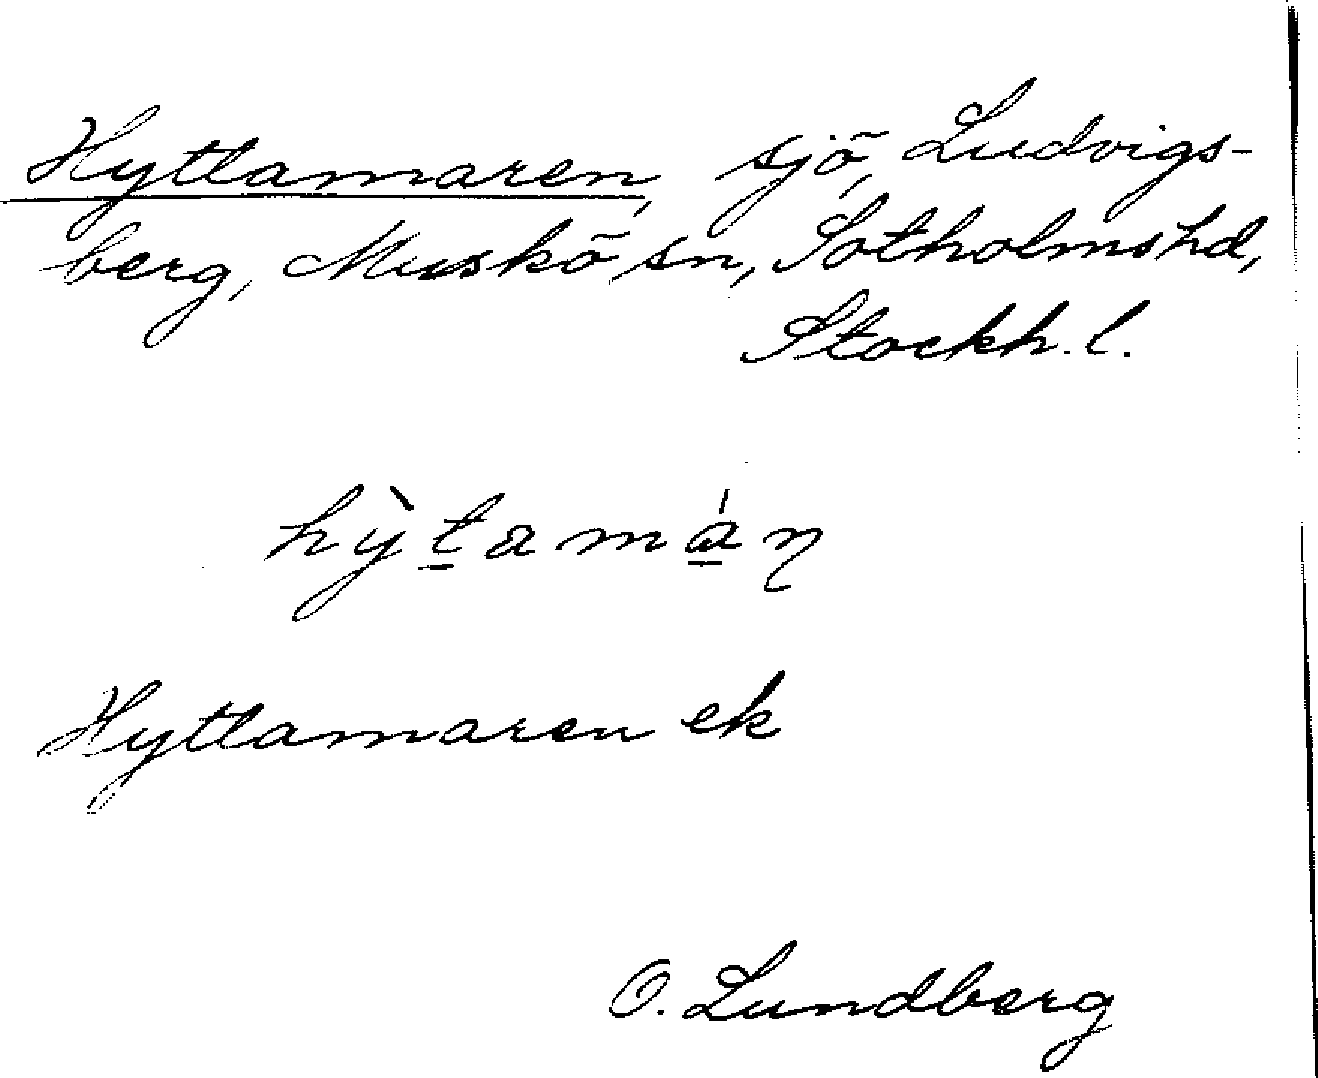 Hyttamaren, sjö, Ludvigs-
berg, Muskö sn, Sotholms hd,
Stockh. l.
hỳt̠amá̠ṇ
Hyttamaren ek
O. Lundberg